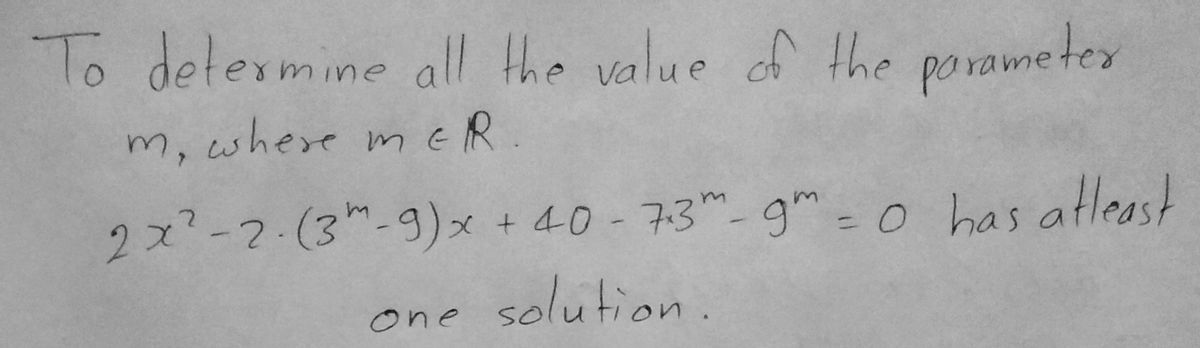 To determine all the value of the parameter
m, where m ∈ ℝ.
2x² - 2·(3ᵐ - 9)x + 40 - 7·3ᵐ - 9ᵐ = 0 has atleast
one solution.